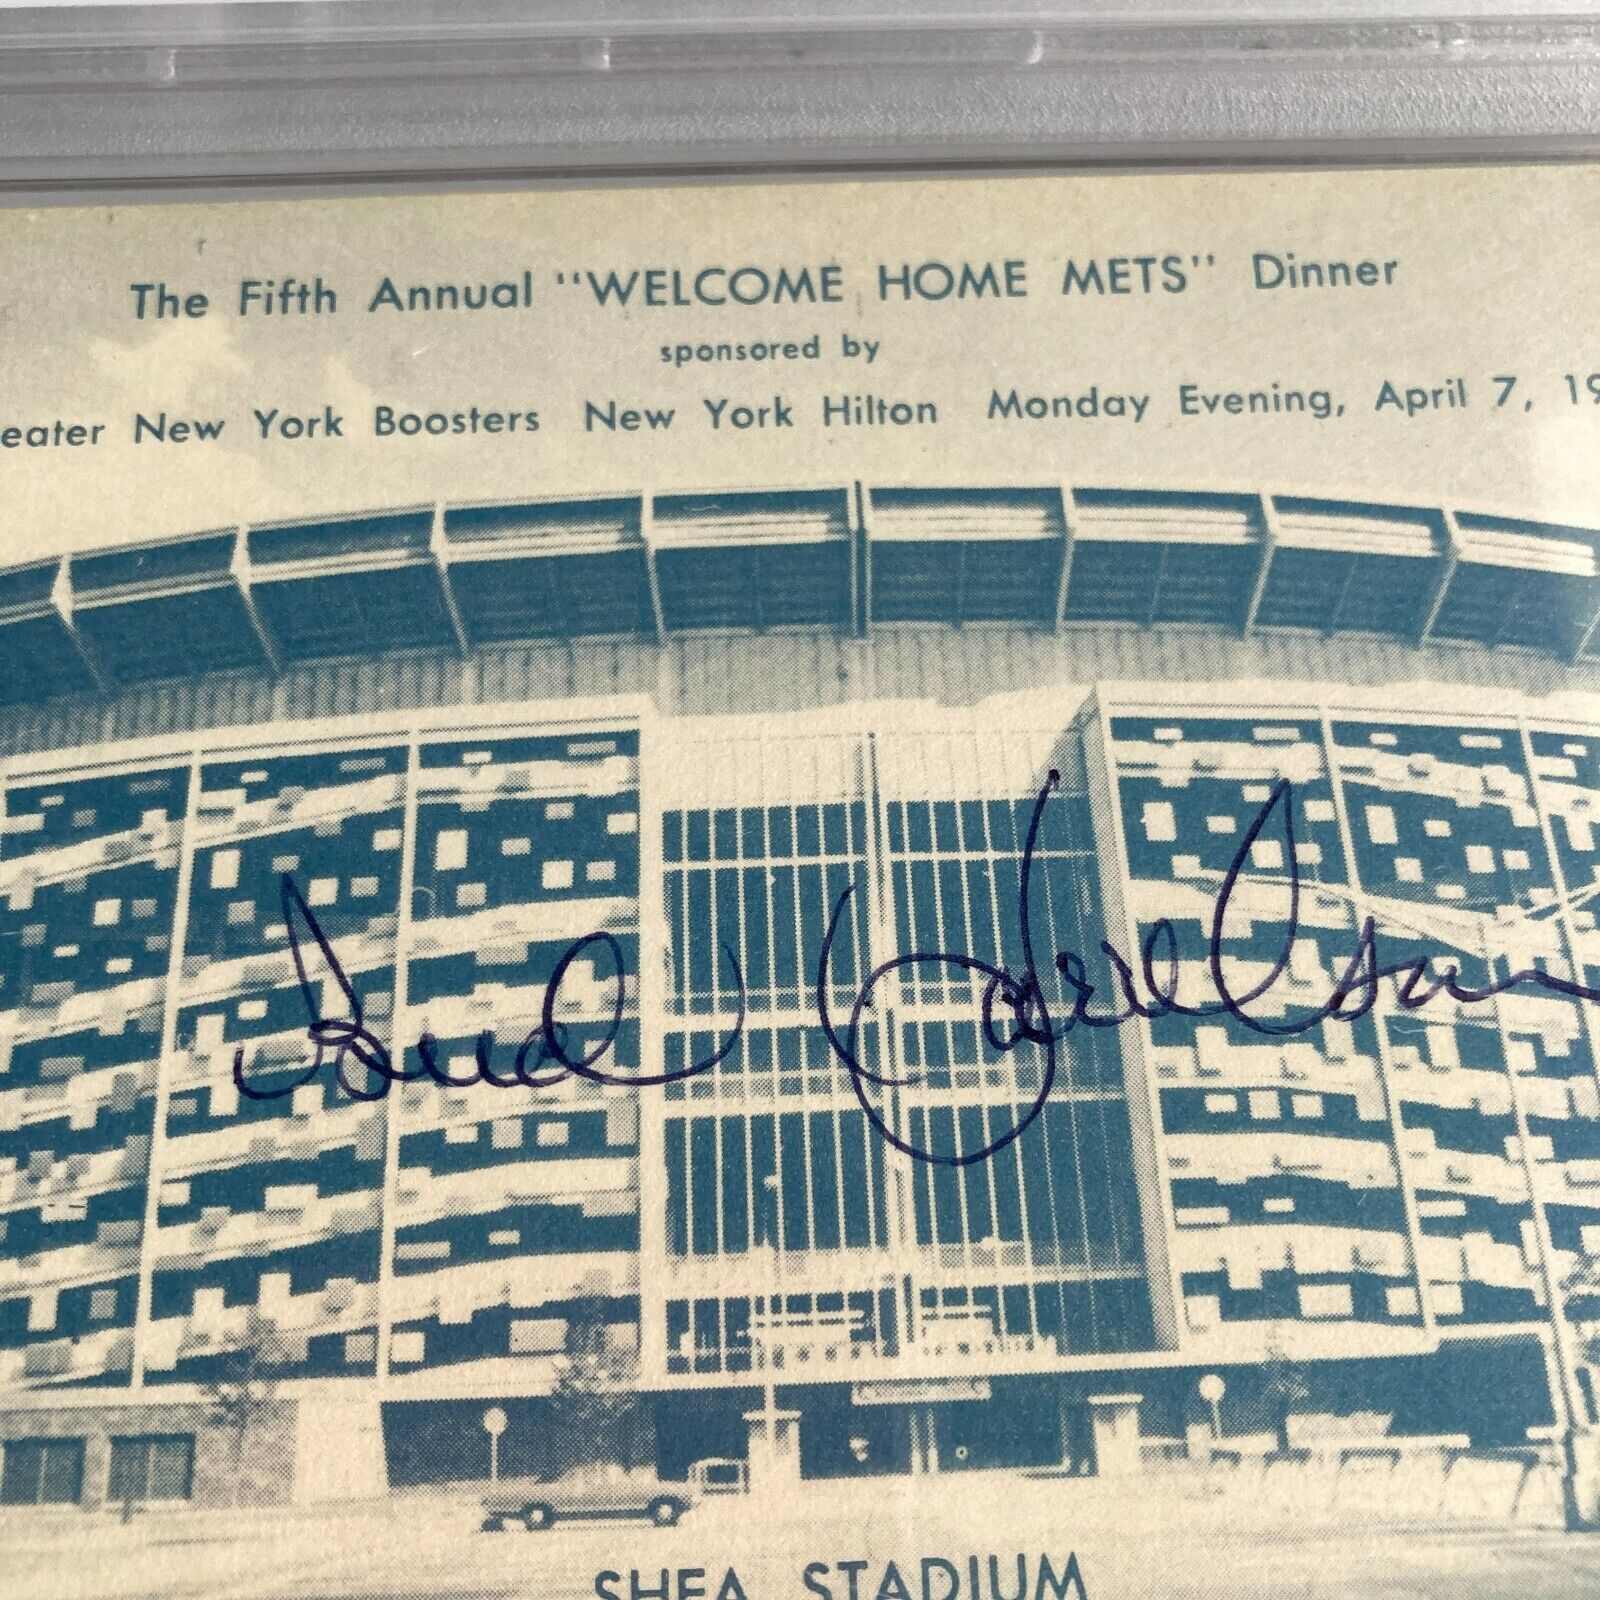 The Fifth Annual "WELCOME HOME METS" Dinner
sponsored by
eater New York Boosters New York Hilton Monday Evening, April 7, 19
SHEA STADIUM